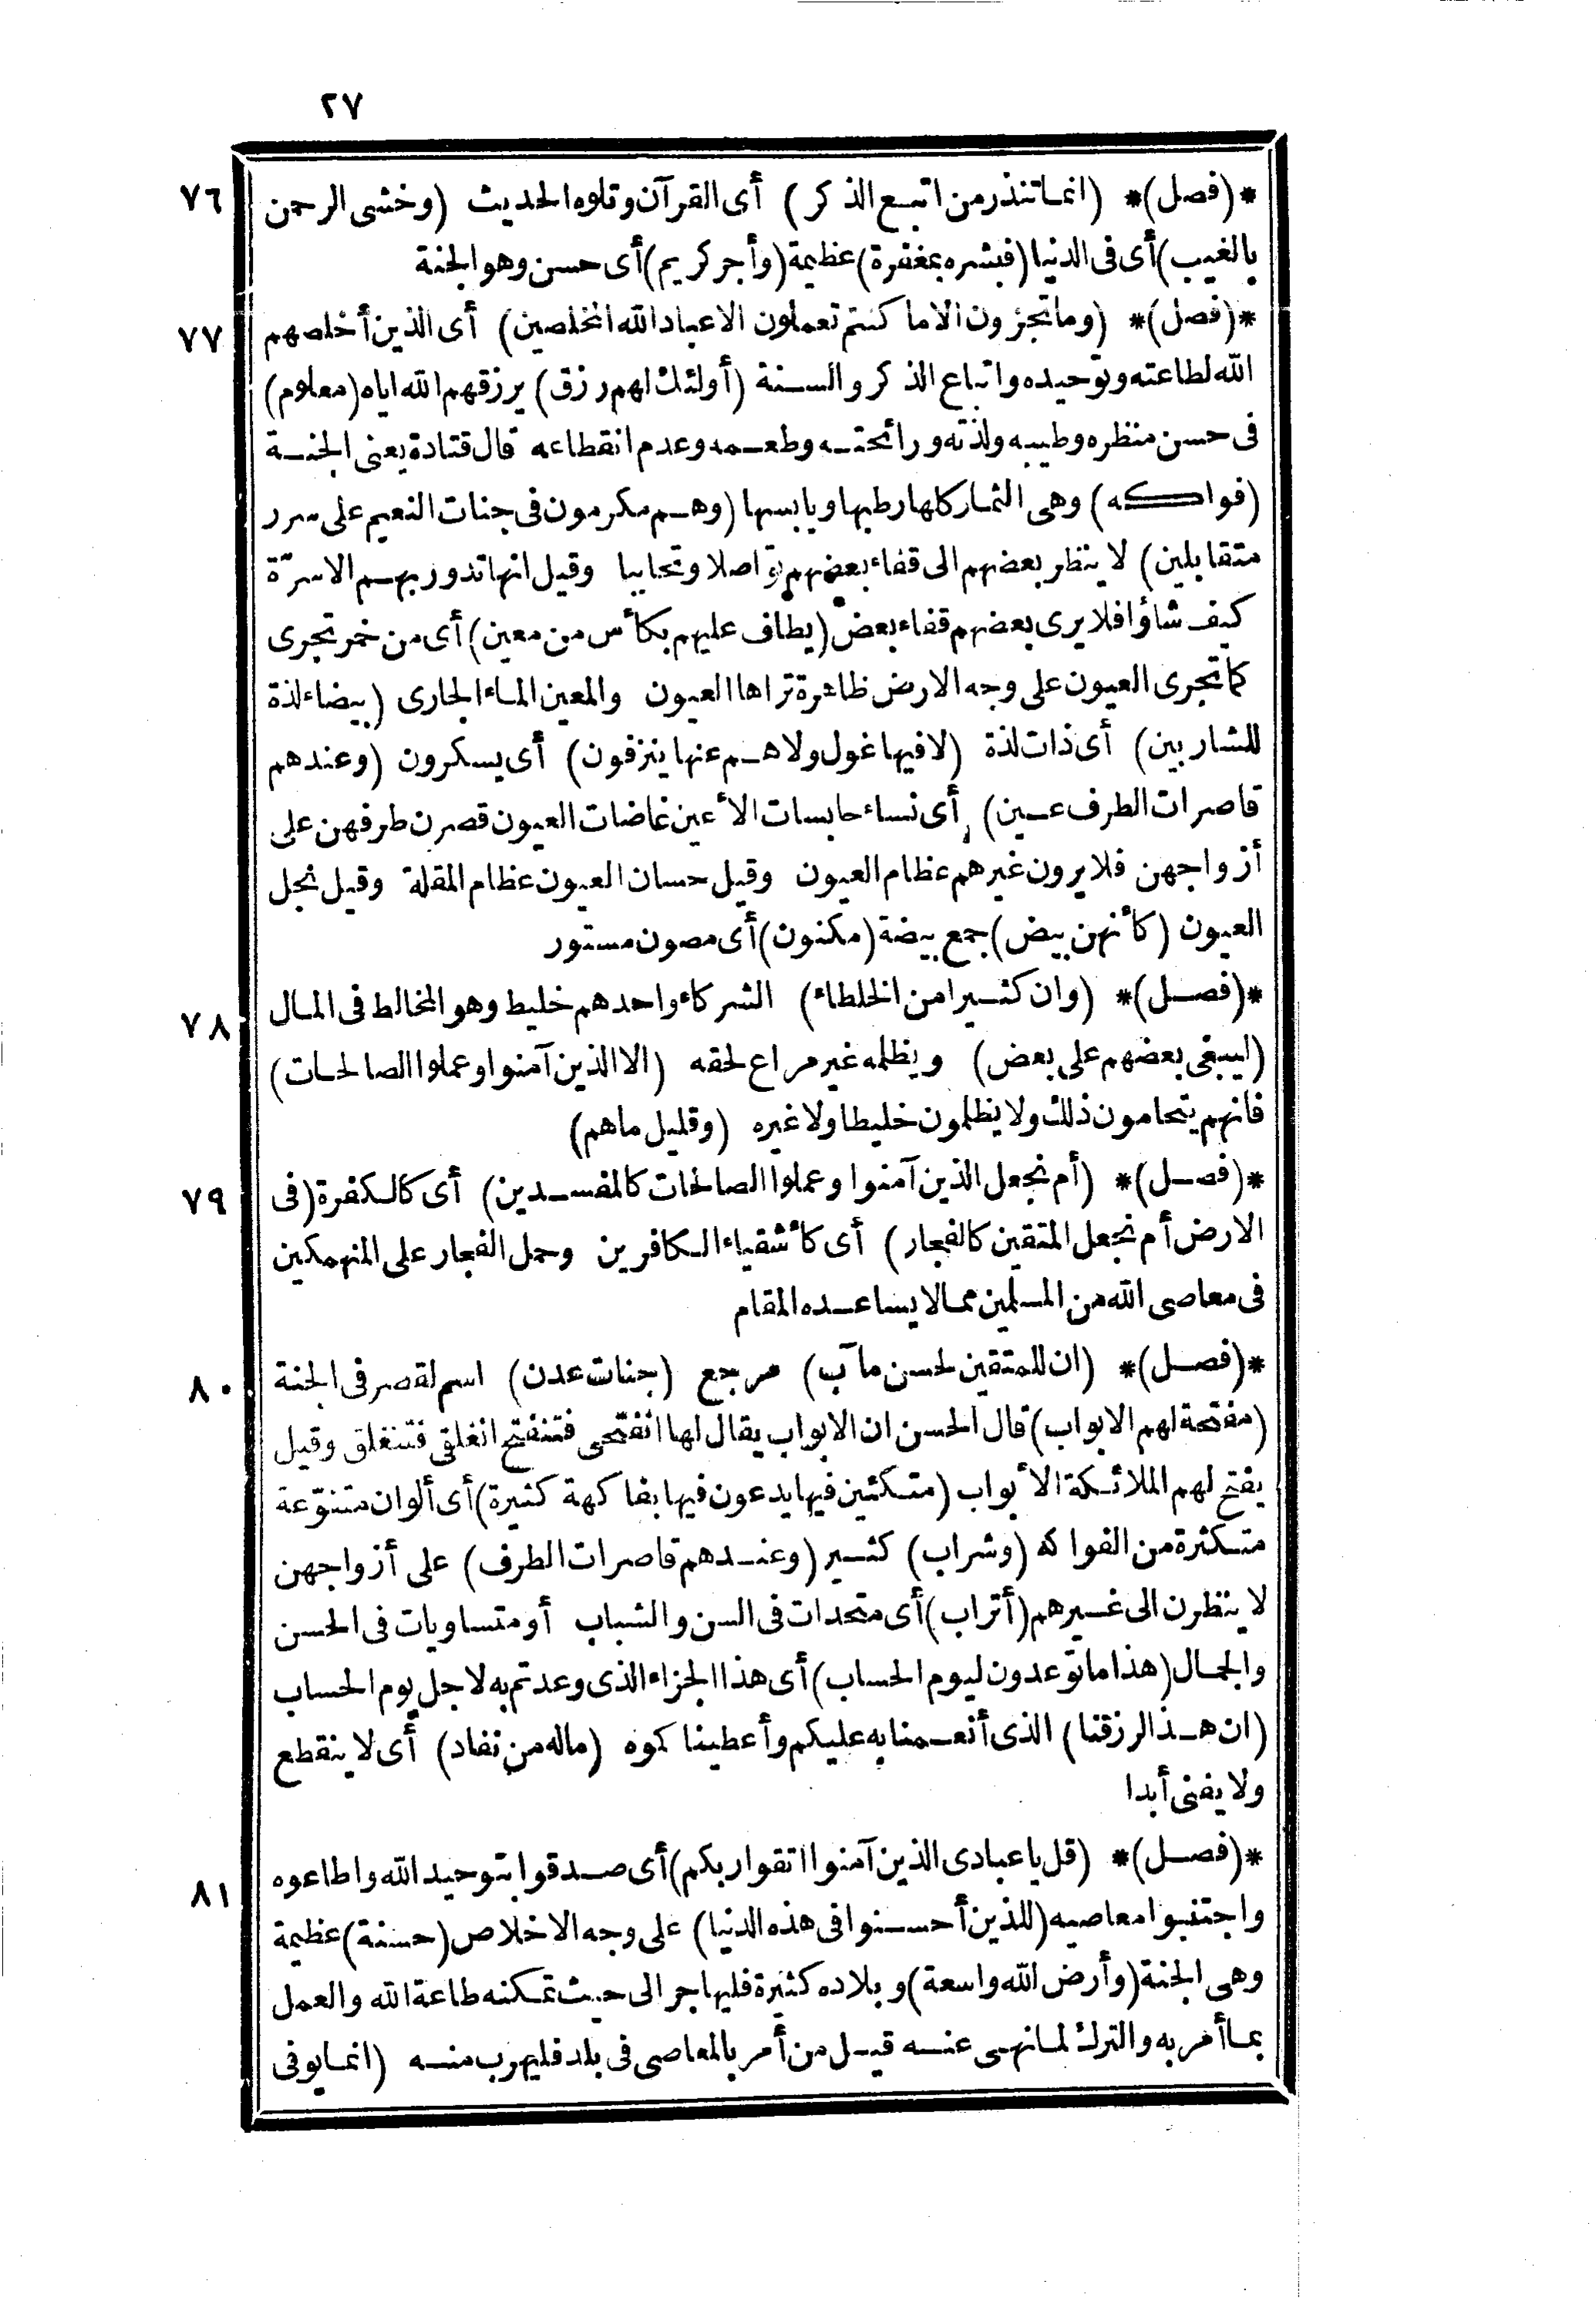 ٢٧
٧٦ *(فصل)* (انما تنذر من اتبع الذكر) أى القرآن وتلوه الحديث (وخشى الرحمن
بالغيب) أى فى الدنيا (فبشره بمغفرة) عظيمة (وأجر كريم) أى حسن وهو الجنة
٧٧ *(فصل)* (وما تجزون الا ما كنتم تعملون الا عباد الله المخلصين) أى الذين أخلصهم
الله لطاعته وتوحيده واتباع الذكر والسنة (أولئك لهم رزق) يرزقهم الله اياه (معلوم)
فى حسن منظره وطيبه ولذته ورائحته وطعمه وعدم انقطاعه قال قتادة يعنى الجنة
(فواكه) وهى الثمار كلها رطبها ويابسها (وهم مكرمون فى جنات النعيم على سرر
متقابلين) لا ينظر بعضهم الى قفاء بعضهم تواصلا وتحاببا وقيل انها تدور بهم الاسرّة
كيف شاؤا فلا يرى بعضهم قفاء بعض (يطاف عليهم بكأس من معين) أى من خمر تجرى
كما تجرى العيون على وجه الارض ظاهرة تراها العيون والمعين الماء الجارى (بيضاء لذة
للشاربين) أى ذات لذة (لا فيها غول ولا هم عنها ينزفون) أى يسكرون (وعندهم
قاصرات الطرف عين) أى نساء حابسات الأعين غاضات العيون قصرن طرفهن على
أزواجهن فلا يرون غيرهم عظام العيون وقيل حسان العيون عظام المقلة وقيل نجل
العيون (كأنهن بيض) جمع بيضة (مكنون) أى مصون مستور
٧٨ *(فصل)* (وان كثيرا من الخلطاء) الشركاء واحدهم خليط وهو المخالط فى المال
(ليبغى بعضهم على بعض) ويظلمه غير مراع لحقه (الا الذين آمنوا وعملوا الصالحات)
فانهم يتحامون ذلك ولا يظلمون خليطا ولا غيره (وقليل ما هم)
٧٩ *(فصل)* (أم نجعل الذين آمنوا وعملوا الصالحات كالمفسدين) أى كالكفرة (فى
الارض أم نجعل المتقين كالفجار) أى كأشقياء الكافرين وحمل الفجار على المنهمكين
فى معاصى الله من المسلمين مما لا يساعده المقام
٨٠ *(فصل)* (ان للمتقين لحسن مآب) مرجع (جنات عدن) اسم لقصر فى الجنة
(مفتحة لهم الابواب) قال الحسن ان الابواب يقال لها انفتحى فتنفتح انغلقى فتنغلق وقيل
يفتح لهم الملائكة الأبواب (متكئين فيها يدعون فيها بفاكهة كثيرة) أى ألوان متنوّعة
متكثرة من الفواكه (وشراب) كثير (وعندهم قاصرات الطرف) على أزواجهن
لا ينظرن الى غيرهم (أتراب) أى متحدات فى السن والشباب أو متساويات فى الحسن
والجمال (هذا ما توعدون ليوم الحساب) أى هذا الجزاء الذى وعدتم به لاجل يوم الحساب
(ان هذا لرزقنا) الذى أنعمنا به عليكم وأعطيناكموه (ماله من نفاد) أى لا ينقطع
ولا يفنى أبدا
٨١ *(فصل)* (قل يا عبادى الذين آمنوا اتقوا ربكم) أى صدقوا بتوحيد الله واطاعوه
واجتنبوا معاصيه (للذين أحسنوا فى هذه الدنيا) على وجه الاخلاص (حسنة) عظيمة
وهى الجنة (وأرض الله واسعة) وبلاده كثيرة فليهاجر الى حيث تمكنه طاعة الله والعمل
بما أمر به والترك لما نهى عنه قيل من أمر بالمعاصى فى بلد فليهرب منه (انما يوفى